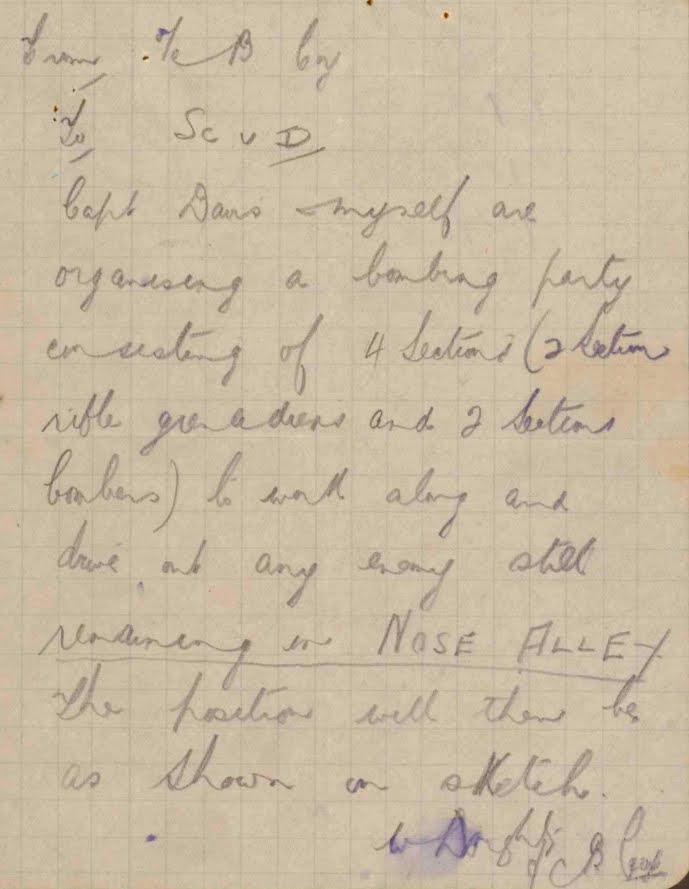 From O/C B Coy
To SCUD
Capt Davis & myself are
organising a bombing party
consisting of 4 Sections (2 Section
rifle grenadiers and 2 Sections
bombers) to work along and
drive out any enemy still
remaining in NOSE ALLEY
The position will then be
as shown in sketch.
B Coy